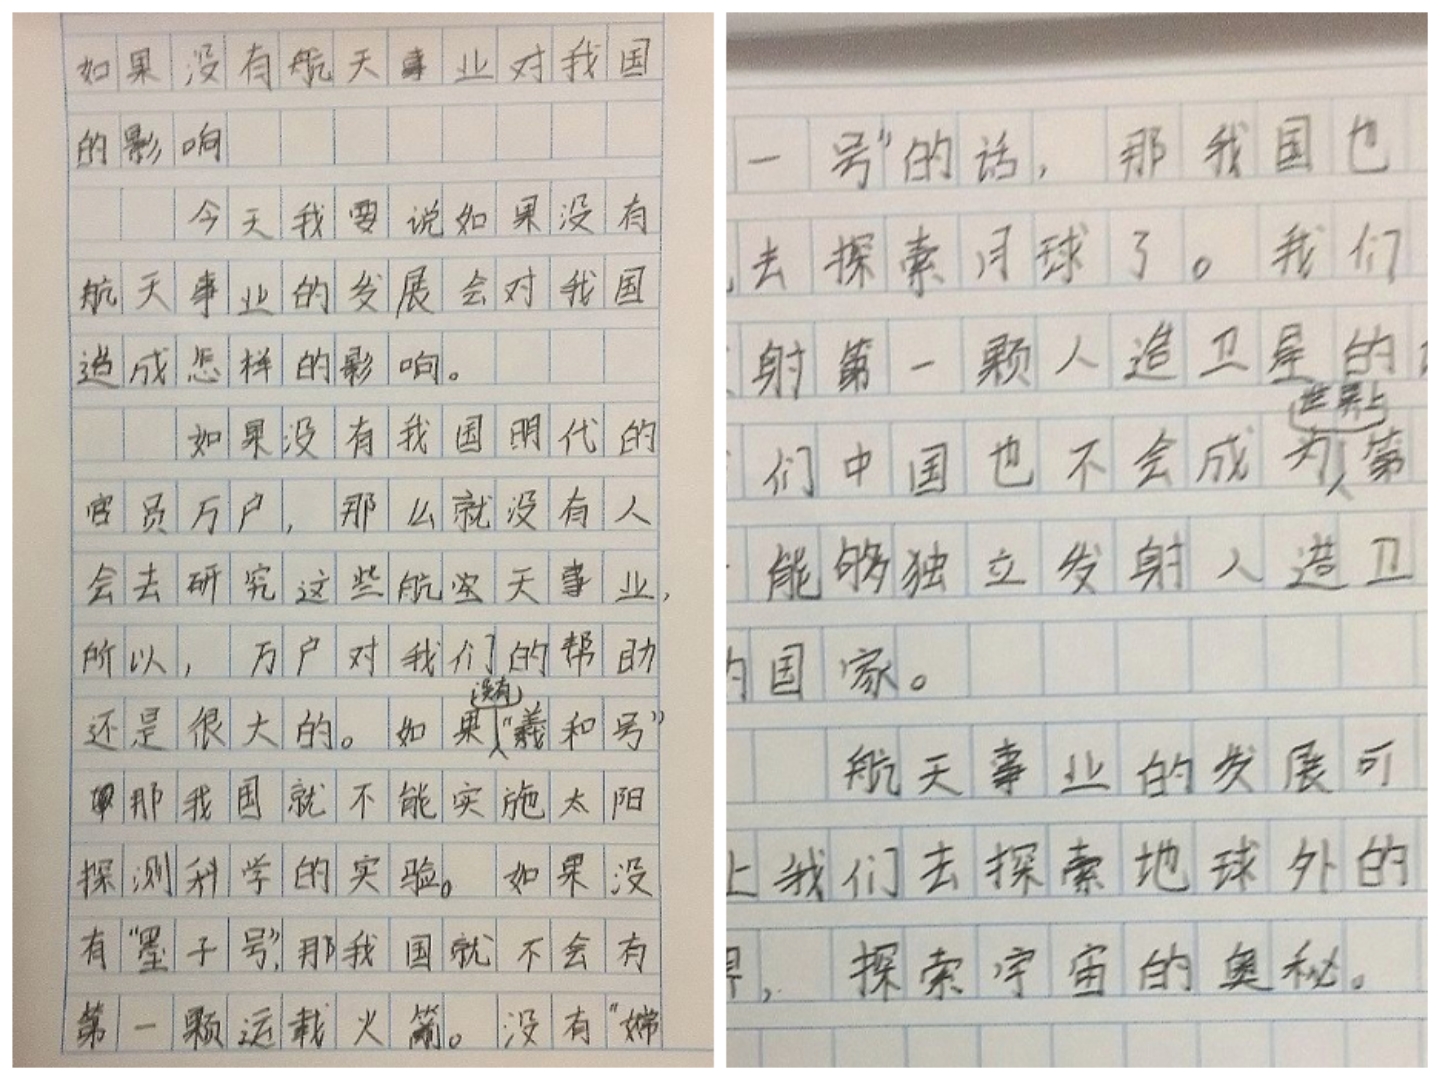 如果没有航天事业对我国
的影响
今天我要说如果没有
航天事业的发展会对我国
造成怎样的影响。
如果没有我国明代的
官员万户，那么就没有人
会去研究这些航空天事业，
所以，万户对我们的帮助
还是很大的。如果没有“羲和号”
那我国就不能实施太阳
探测科学的实验。如果没
有“墨子号”，那我国就不会有
第一颗运载火箭。没有“嫦
一号”的话，那我国也
去探索月球了。我们
射第一颗人造卫星的
们中国也不会成为世界上第
能够独立发射人造卫
的国家。
航天事业的发展可
上我们去探索地球外的
界，探索宇宙的奥秘。